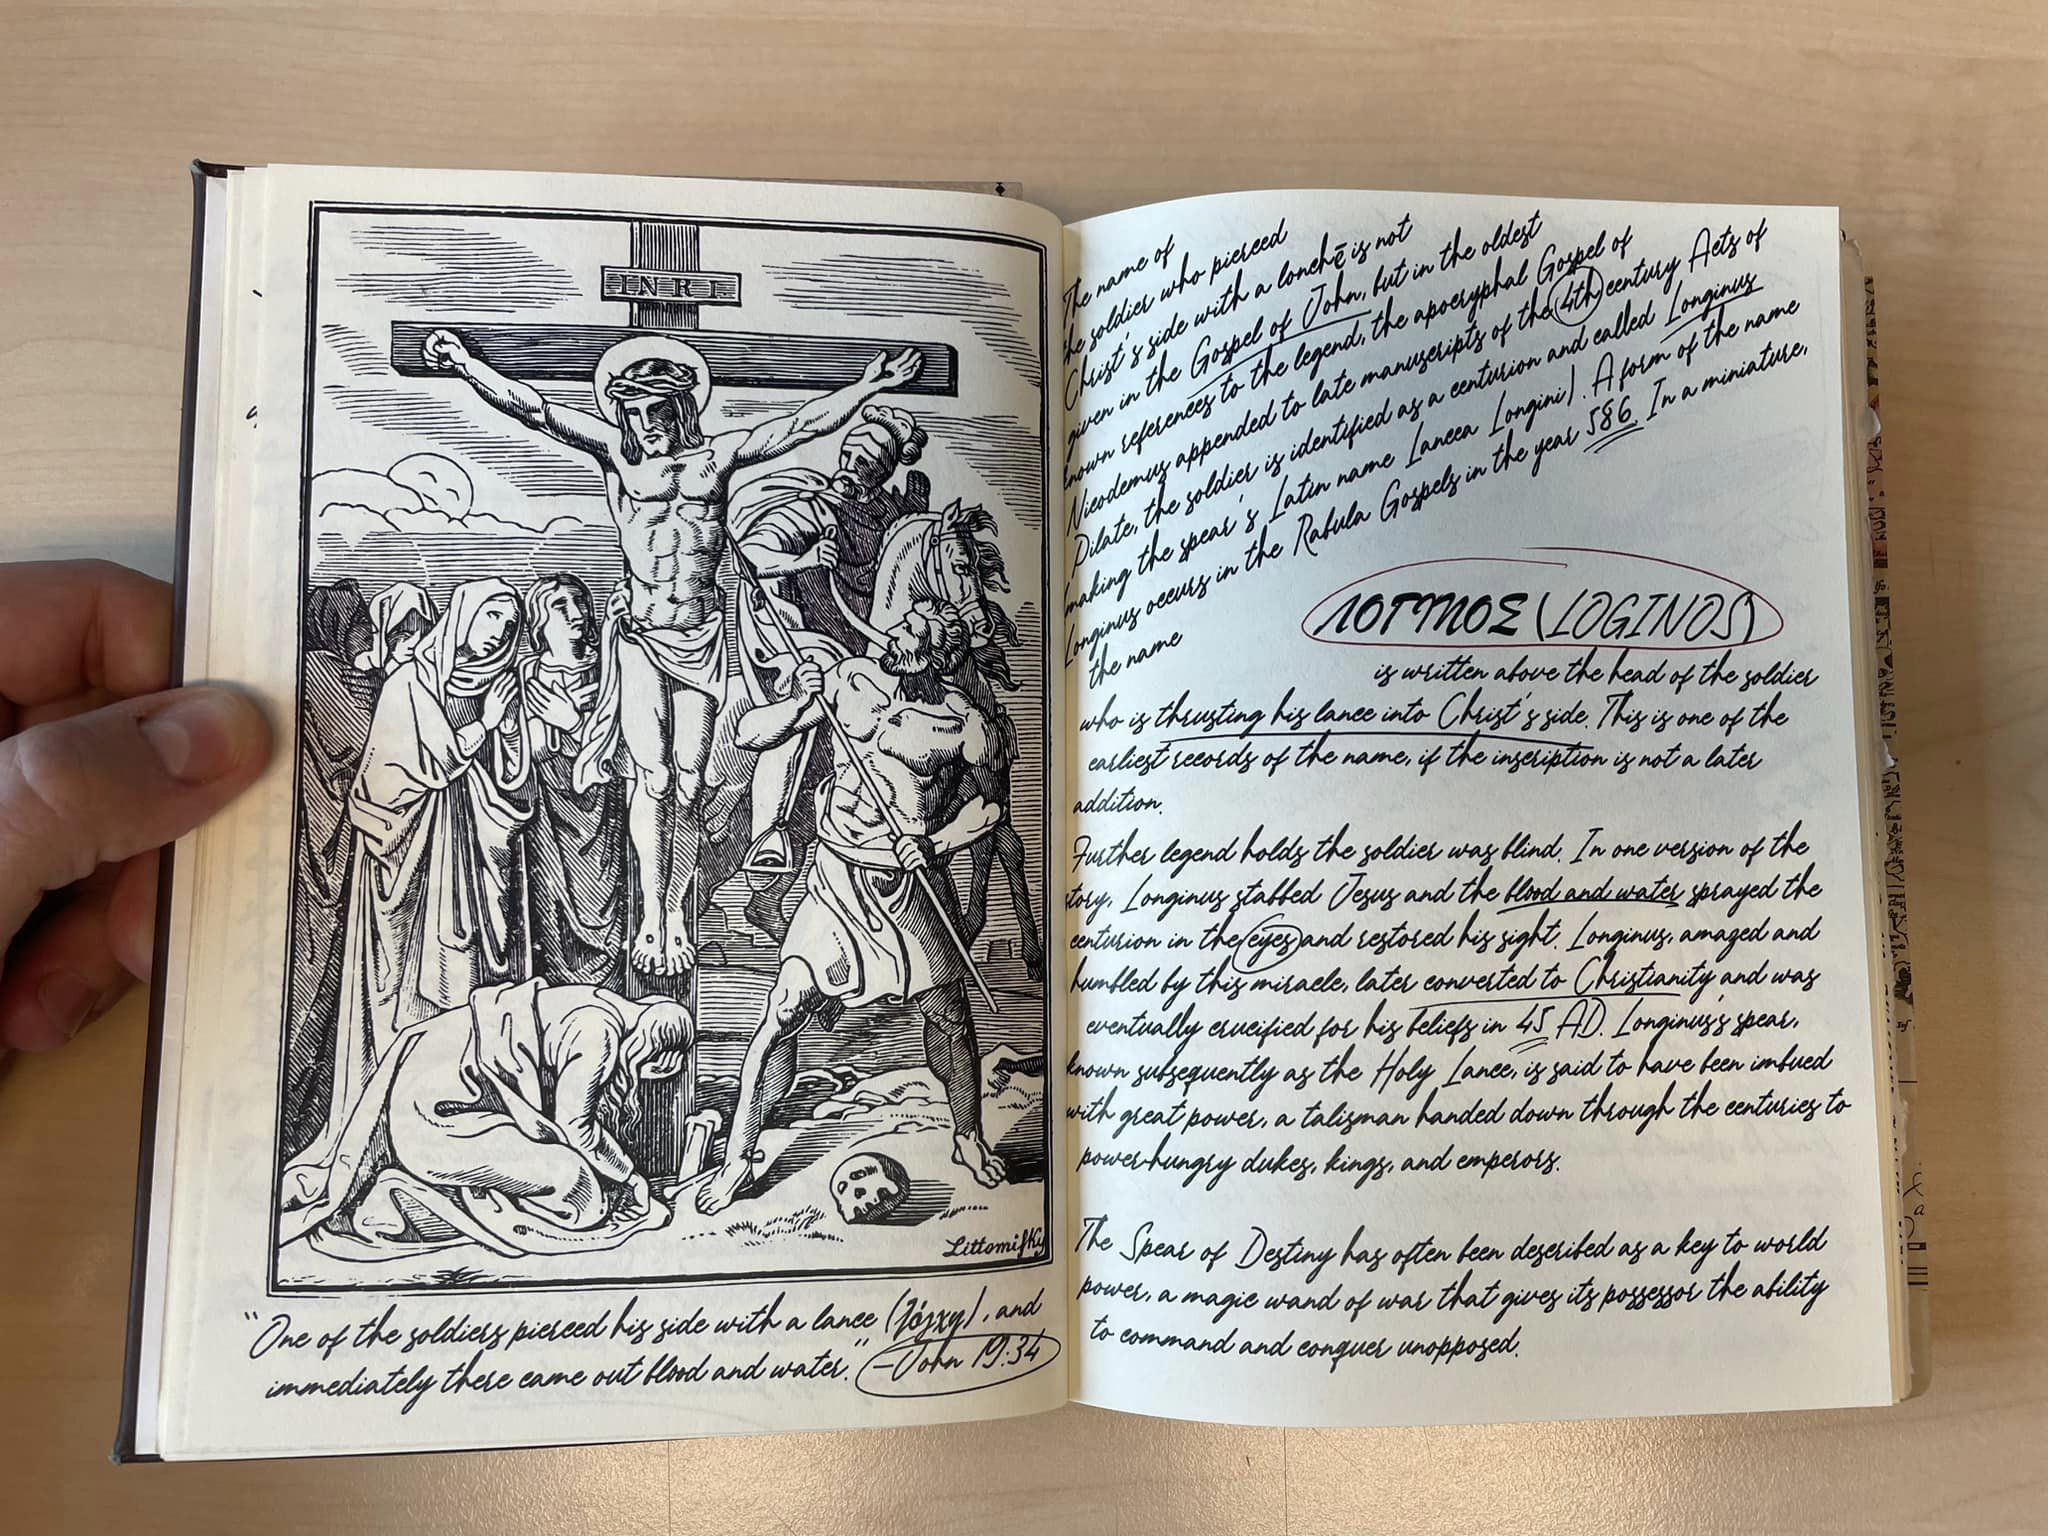 I.N.R.I.
Littomisky
"One of the soldiers pierced his side with a lance (λόγχη), and
immediately there came out blood and water."
—John 19:34
The name of
the soldier who pierced
Christ's side with a lonchē is not
given in the Gospel of John, but in the oldest
known references to the legend, the apocryphal Gospel of
Nicodemus appended to late manuscripts of the 4th century Acts of
Pilate, the soldier is identified as a centurion and called Longinus
(making the spear's Latin name Lancea Longini). A form of the name
Longinus occurs in the Rabula Gospels in the year 586. In a miniature,
the name
ΛΟΓΙΝΟΣ (LOGINOS)
is written above the head of the soldier
who is thrusting his lance into Christ's side. This is one of the
earliest records of the name, if the inscription is not a later
addition.
Further legend holds the soldier was blind. In one version of the
story, Longinus stabbed Jesus and the blood and water sprayed the
centurion in the eyes and restored his sight. Longinus, amazed and
humbled by this miracle, later converted to Christianity and was
eventually crucified for his beliefs in 45 AD. Longinus's spear,
known subsequently as the Holy Lance, is said to have been imbued
with great power, a talisman handed down through the centuries to
power-hungry dukes, kings, and emperors.
The Spear of Destiny has often been described as a key to world
power, a magic wand of war that gives its possessor the ability
to command and conquer unopposed.